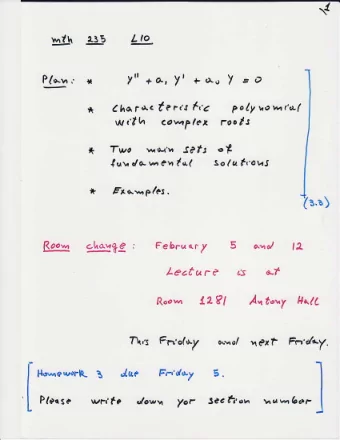 1
mth 235 L10
Plan: * y'' + a₁ y' + a₀ y = 0
* Characteristic polynomial
with complex roots
* Two main sets of
fundamental solutions
* Examples.
(3.3)
Room change: February 5 and 12
Lecture is at
Room 1281 Antony Hall
This Friday and next Friday.
Homework 3 due Friday 5.
Please write down yor section number